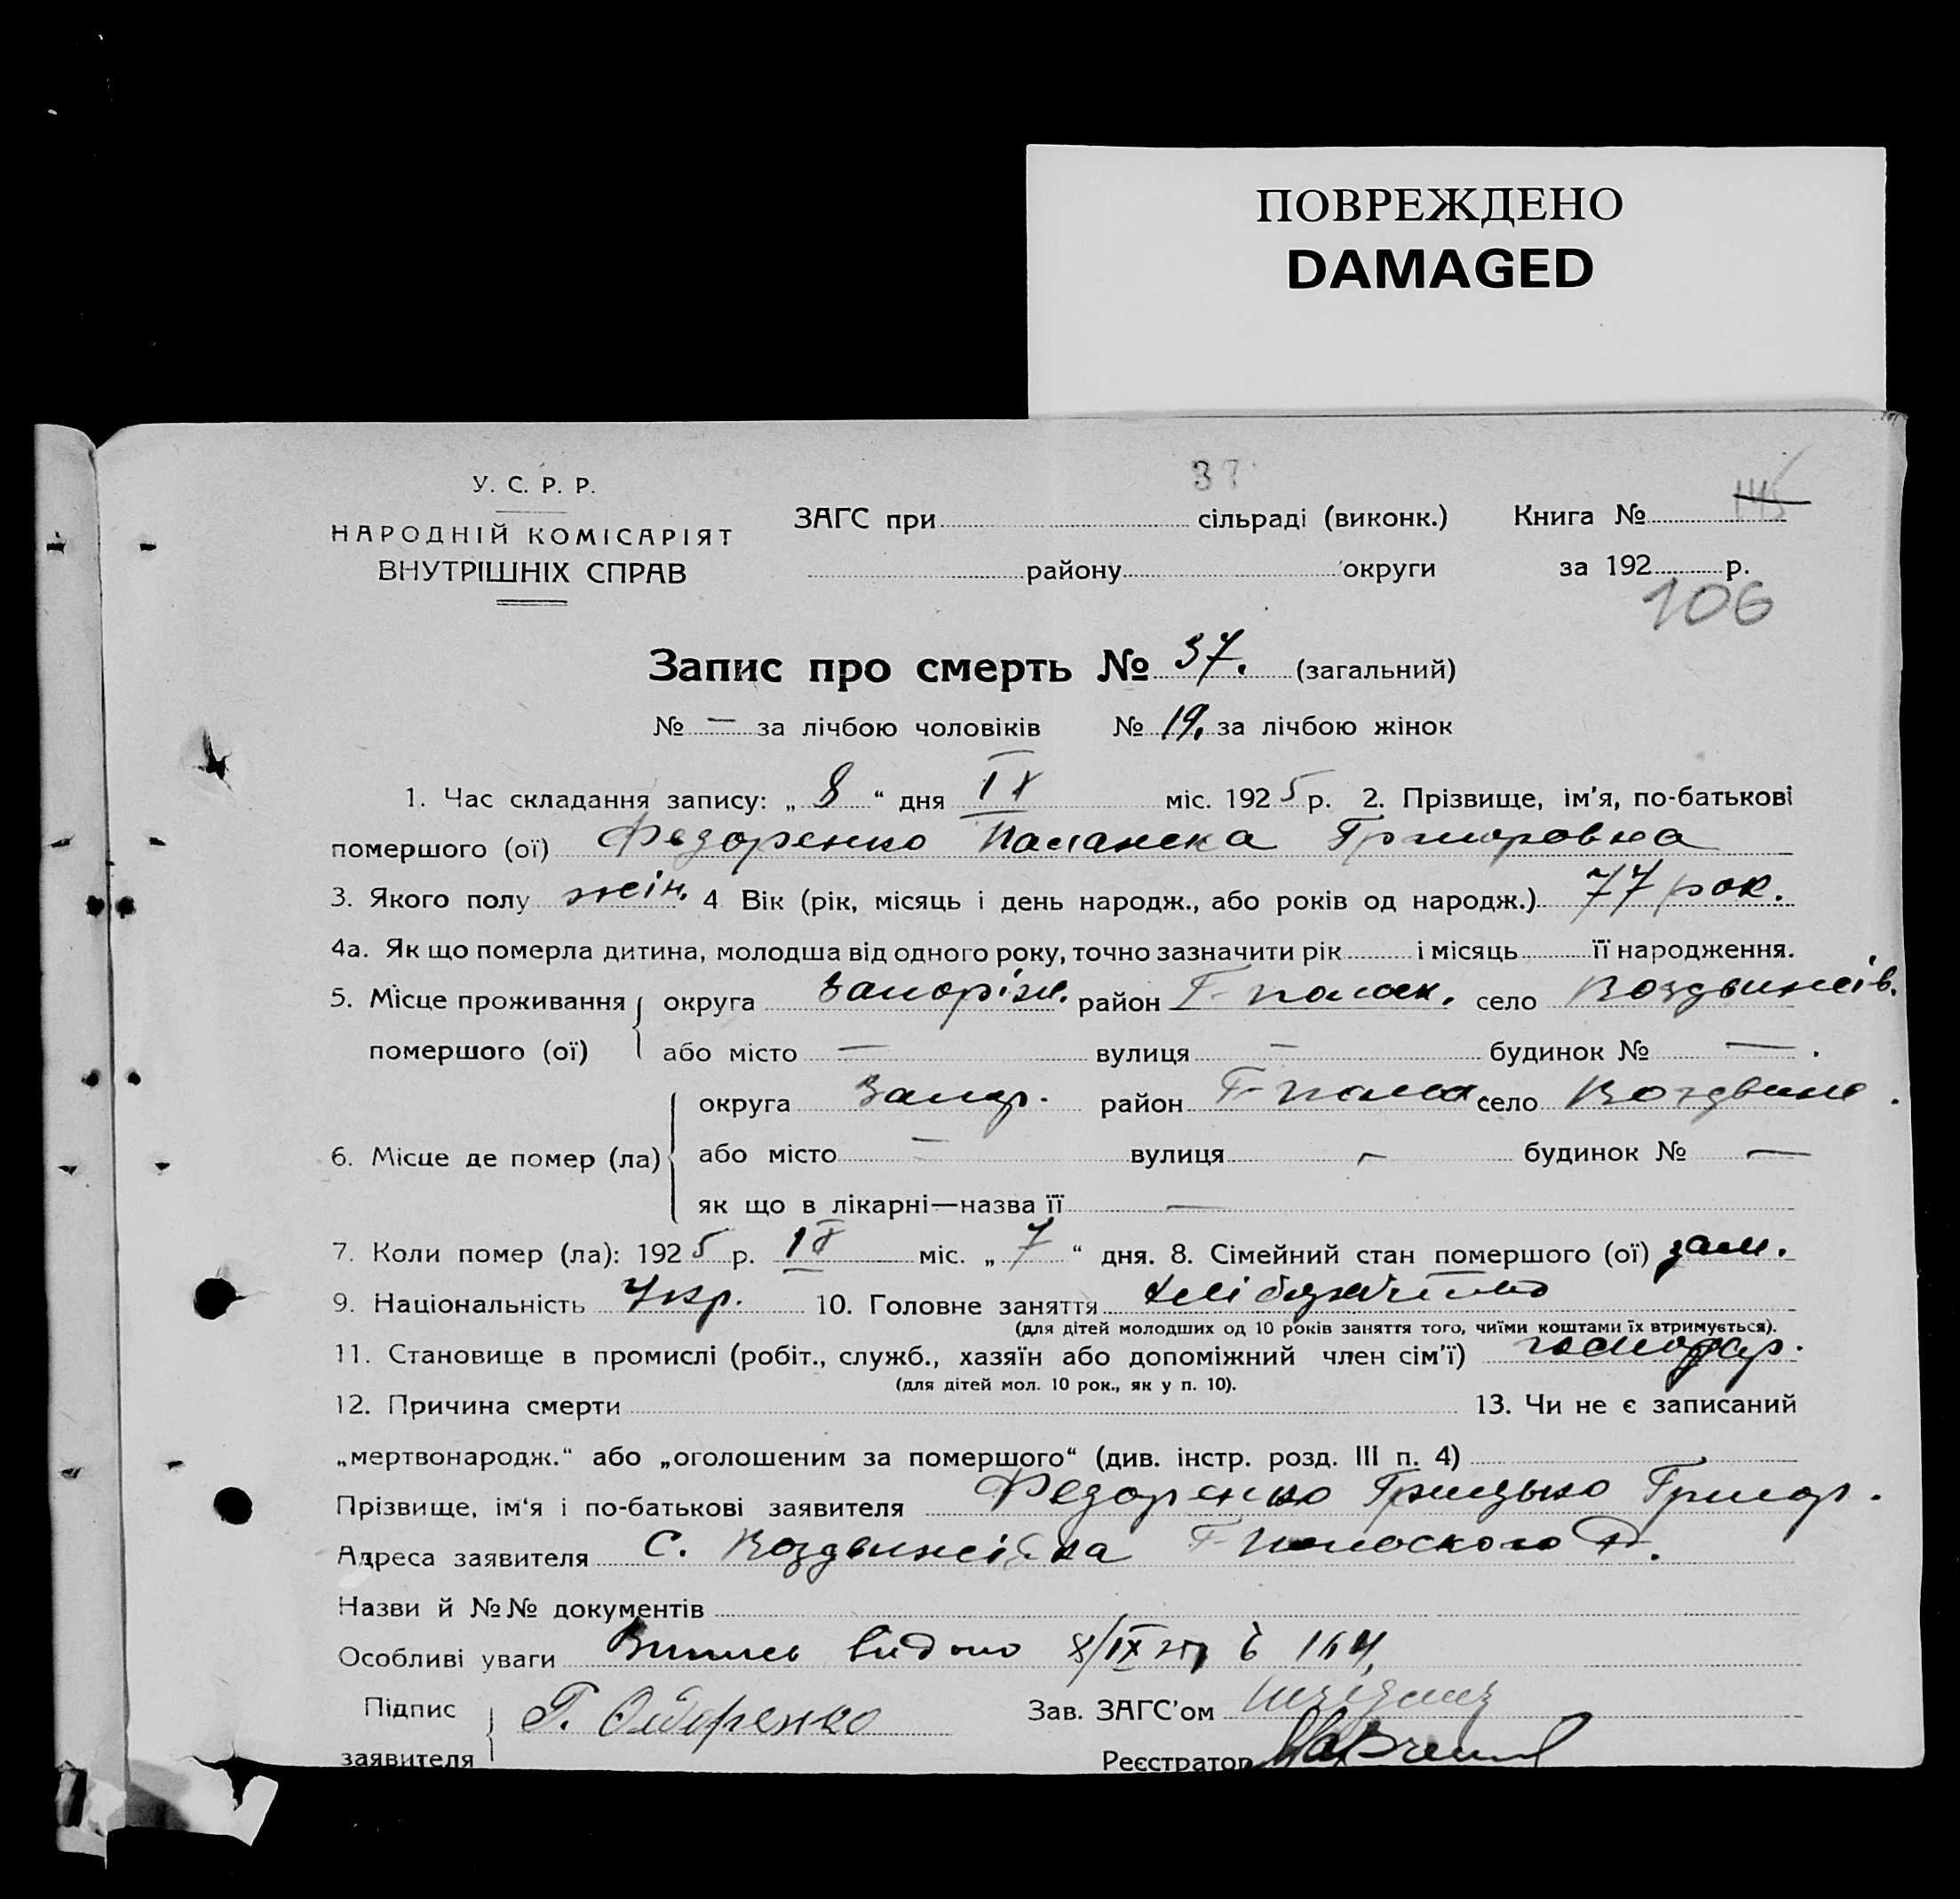 ПОВРЕЖДЕНО
DAMAGED
37
У. С. Р. Р.
НАРОДНІЙ КОМІСАРІЯТ
ВНУТРІШНІХ СПРАВ
ЗАГС при сільраді (виконк.) Книга № 145
району округи за 192 р.
106
Запис про смерть № 37. (загальний)
№ — за лічбою чоловіків № 19. за лічбою жінок
1. Час складання запису: „ 8 “ дня IX міс. 1925 р. 2. Прізвище, ім'я, по-батькові
помершого (ої) Федоренко Палажка Григоровна
3. Якого полу жін. 4 Вік (рік, місяць і день народж., або років од народж.) 77 рок.
4а. Як що померла дитина, молодша від одного року, точно зазначити рік і місяць її народження.
5. Місце проживання округа Запоріж. район Г-полськ. село Воздвижків.
помершого (ої) або місто — вулиця — будинок № — .
округа Запор. район Г-поль село Воздвиж.
6. Місце де помер (ла) або місто — вулиця — будинок № —
як що в лікарні—назва її —
7. Коли помер (ла): 1925 р. IX міс. „ 7 “ дня. 8. Сімейний стан помершого (ої) зам.
9. Національність Укр. 10. Головне заняття
(для дітей молодших од 10 років заняття того, чиїми коштами їх втримується).
11. Становище в промислі (робіт., служб., хазяїн або допоміжний член сім'ї) господар.
(для дітей мол. 10 рок., як у п. 10).
12. Причина смерти 13. Чи не є записаний
„мертвонародж.“ або „оголошеним за помершого“ (див. інстр. розд. III п. 4)
Прізвище, ім'я і по-батькові заявителя Федоренко Грицько Григор.
Адреса заявителя С. Воздвижівка Г-польского Р.
Назви й №№ документів
Особливі уваги Випись видано 8/IX 164,
Підпис Г. Федоренко Зав. ЗАГС'ом
заявителя Реєстратор